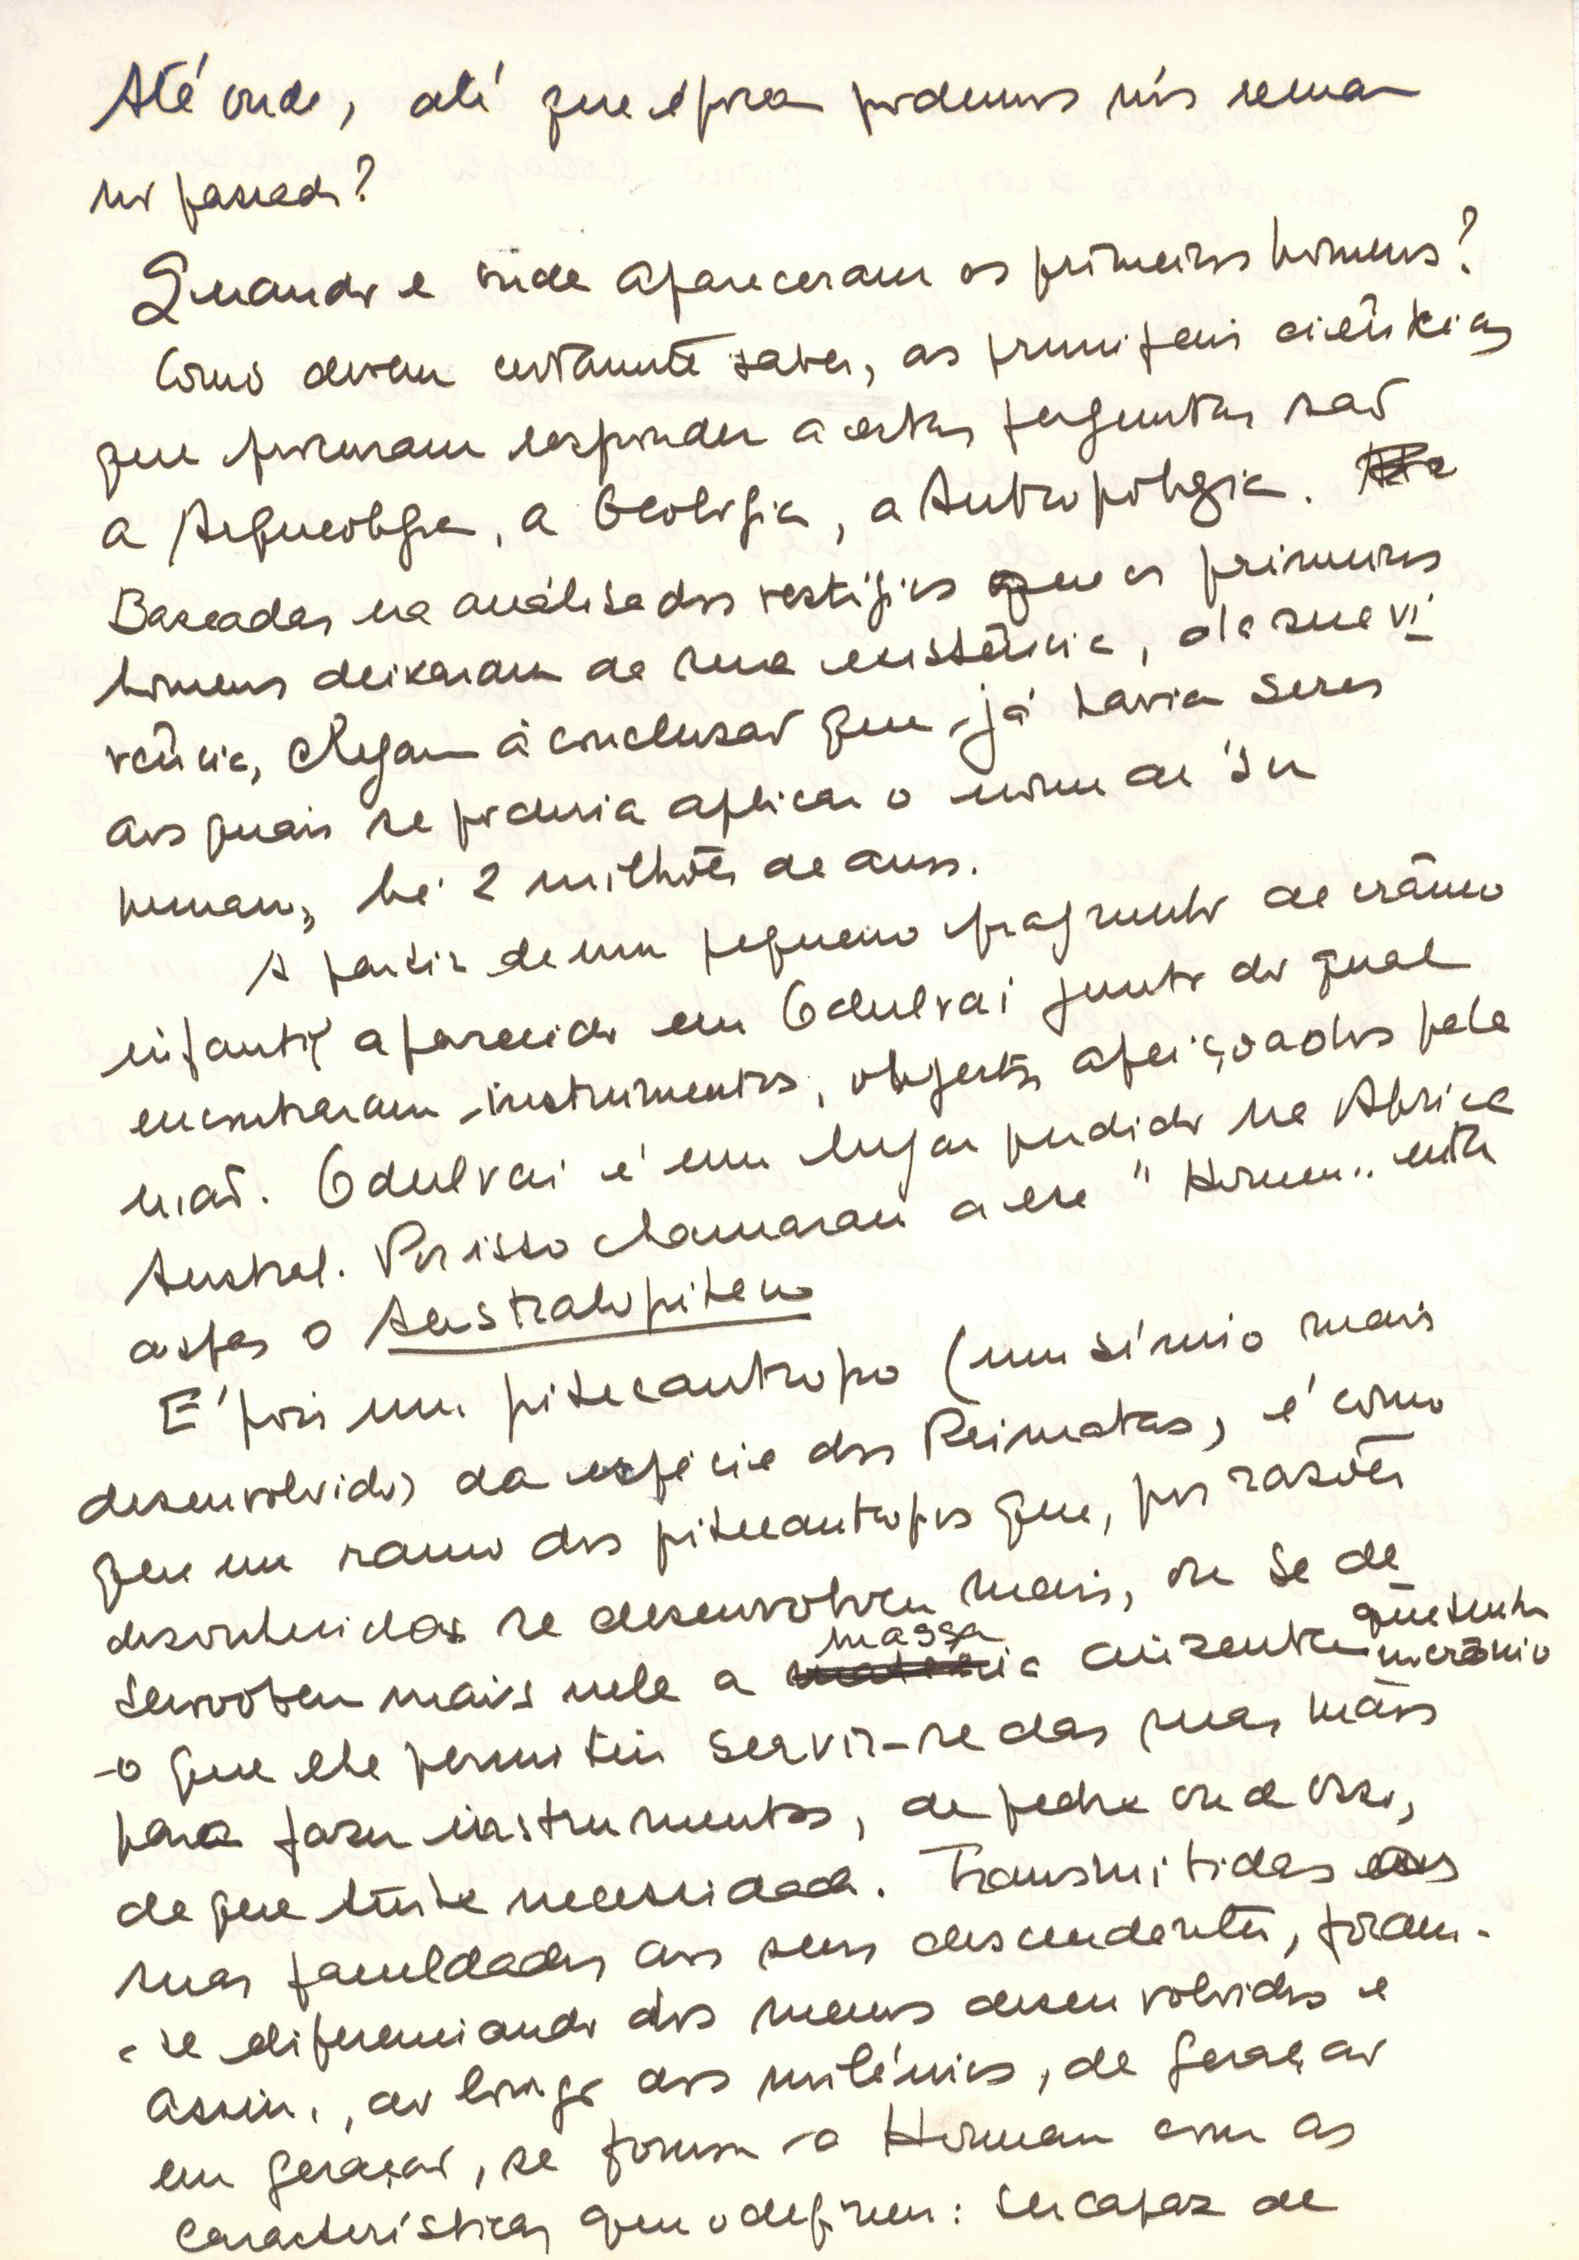 Até onde, até que época podemos nós remar
no passado?
Quando e onde apareceram os primeiros homens?
Como devem certamente saber, as principais ciências
que procuram responder a estas perguntas são
a Arqueologia, a Geologia, a Antropologia.
Baseadas na análise dos vestígios que os primeiros
homens deixaram da sua existência, da sua vi
vência, chegam à conclusão que já havia seres
aos quais se poderia aplicar o nome de "ser
humano", há 2 milhões de anos.
A partir de um pequeno fragmento de crâneo
infantil aparecido em Odulvai junto do qual
encontraram instrumentos, objectos afeiçoados pela
mão. Odulvai é um lugar perdido na Africa
Austral. Por isso chamaram a esse "Homem" entre
aspas o Australopiteco
E' pois um pitecantropo (um símio mais
desenvolvido) da espécie dos Primatas, é como
que um ramo dos pitecantropos que, por razões
desconhecidas se desenvolveu mais, ou se de
senvolveu mais nele a massa cinzenta que tenho
no crânio
-o que lhe permitiu servir-se das suas mãos
para fazer instrumentos, de pedra ou de osso,
de que tinha necessidade. Transmitidas as
suas faculdades aos seus descendentes, foram-
-se diferenciando dos menos desenvolvidos e
assim, ao longo dos milénios, de geração
em geração, se formou o Homem com as
características que o definem: ser capaz de